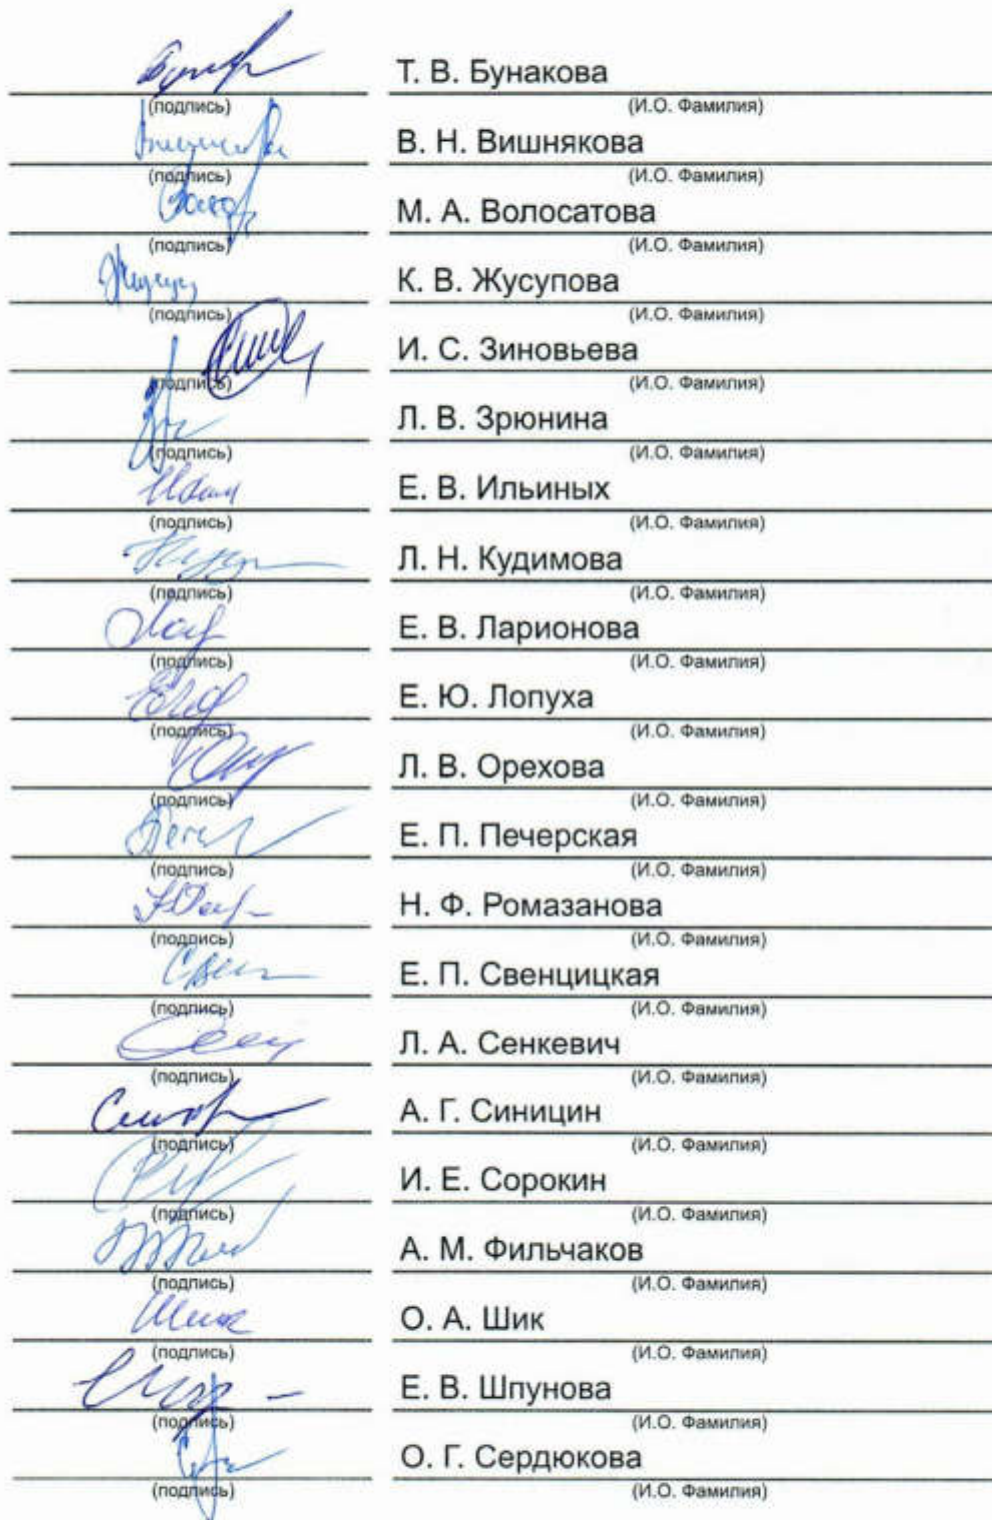 Т. В. Бунакова
(подпись) (И.О. Фамилия)
В. Н. Вишнякова
(подпись) (И.О. Фамилия)
М. А. Волосатова
(подпись) (И.О. Фамилия)
К. В. Жусупова
(подпись) (И.О. Фамилия)
И. С. Зиновьева
(подпись) (И.О. Фамилия)
Л. В. Зрюнина
(подпись) (И.О. Фамилия)
Е. В. Ильиных
(подпись) (И.О. Фамилия)
Л. Н. Кудимова
(подпись) (И.О. Фамилия)
Е. В. Ларионова
(подпись) (И.О. Фамилия)
Е. Ю. Лопуха
(подпись) (И.О. Фамилия)
Л. В. Орехова
(подпись) (И.О. Фамилия)
Е. П. Печерская
(подпись) (И.О. Фамилия)
Н. Ф. Ромазанова
(подпись) (И.О. Фамилия)
Е. П. Свенцицкая
(подпись) (И.О. Фамилия)
Л. А. Сенкевич
(подпись) (И.О. Фамилия)
А. Г. Синицин
(подпись) (И.О. Фамилия)
И. Е. Сорокин
(подпись) (И.О. Фамилия)
А. М. Фильчаков
(подпись) (И.О. Фамилия)
О. А. Шик
(подпись) (И.О. Фамилия)
Е. В. Шпунова
(подпись) (И.О. Фамилия)
О. Г. Сердюкова
(подпись) (И.О. Фамилия)